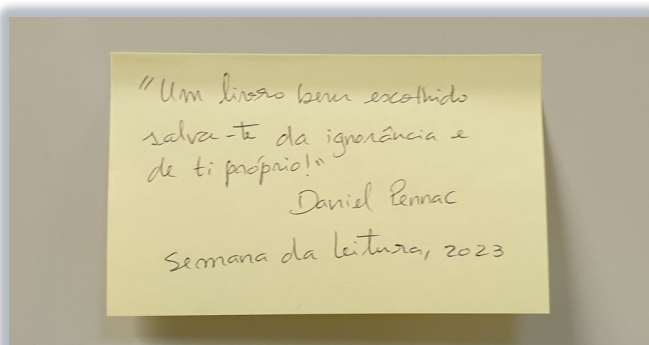 "Um livro bem escolhido
salva-te da ignorância e
de ti próprio!"
Daniel Pennac
Semana da leitura, 2023